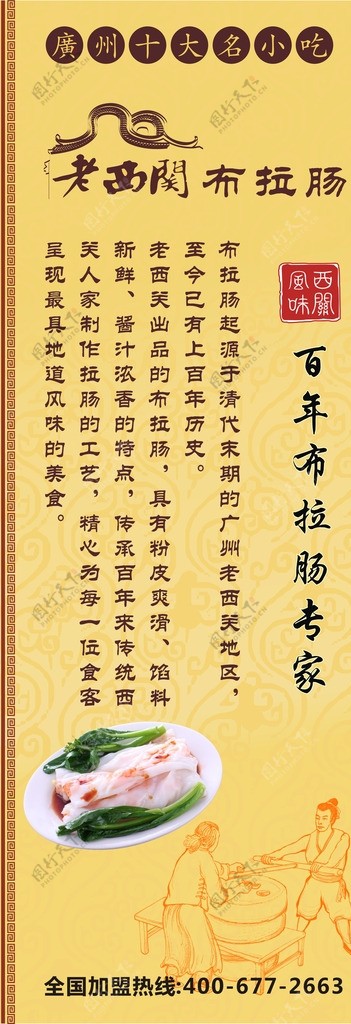 廣州十大名小吃
老西関布拉肠
西關風味
百年布拉肠专家
布拉肠起源于清代末期的广州老西关地区，
至今已有上百年历史。
老西关出品的布拉肠，具有粉皮爽滑、馅料
新鲜、酱汁浓香的特点，传承百年来传统西
关人家制作拉肠的工艺，精心为每一位食客
呈现最具地道风味的美食。
全国加盟热线:400-677-2663